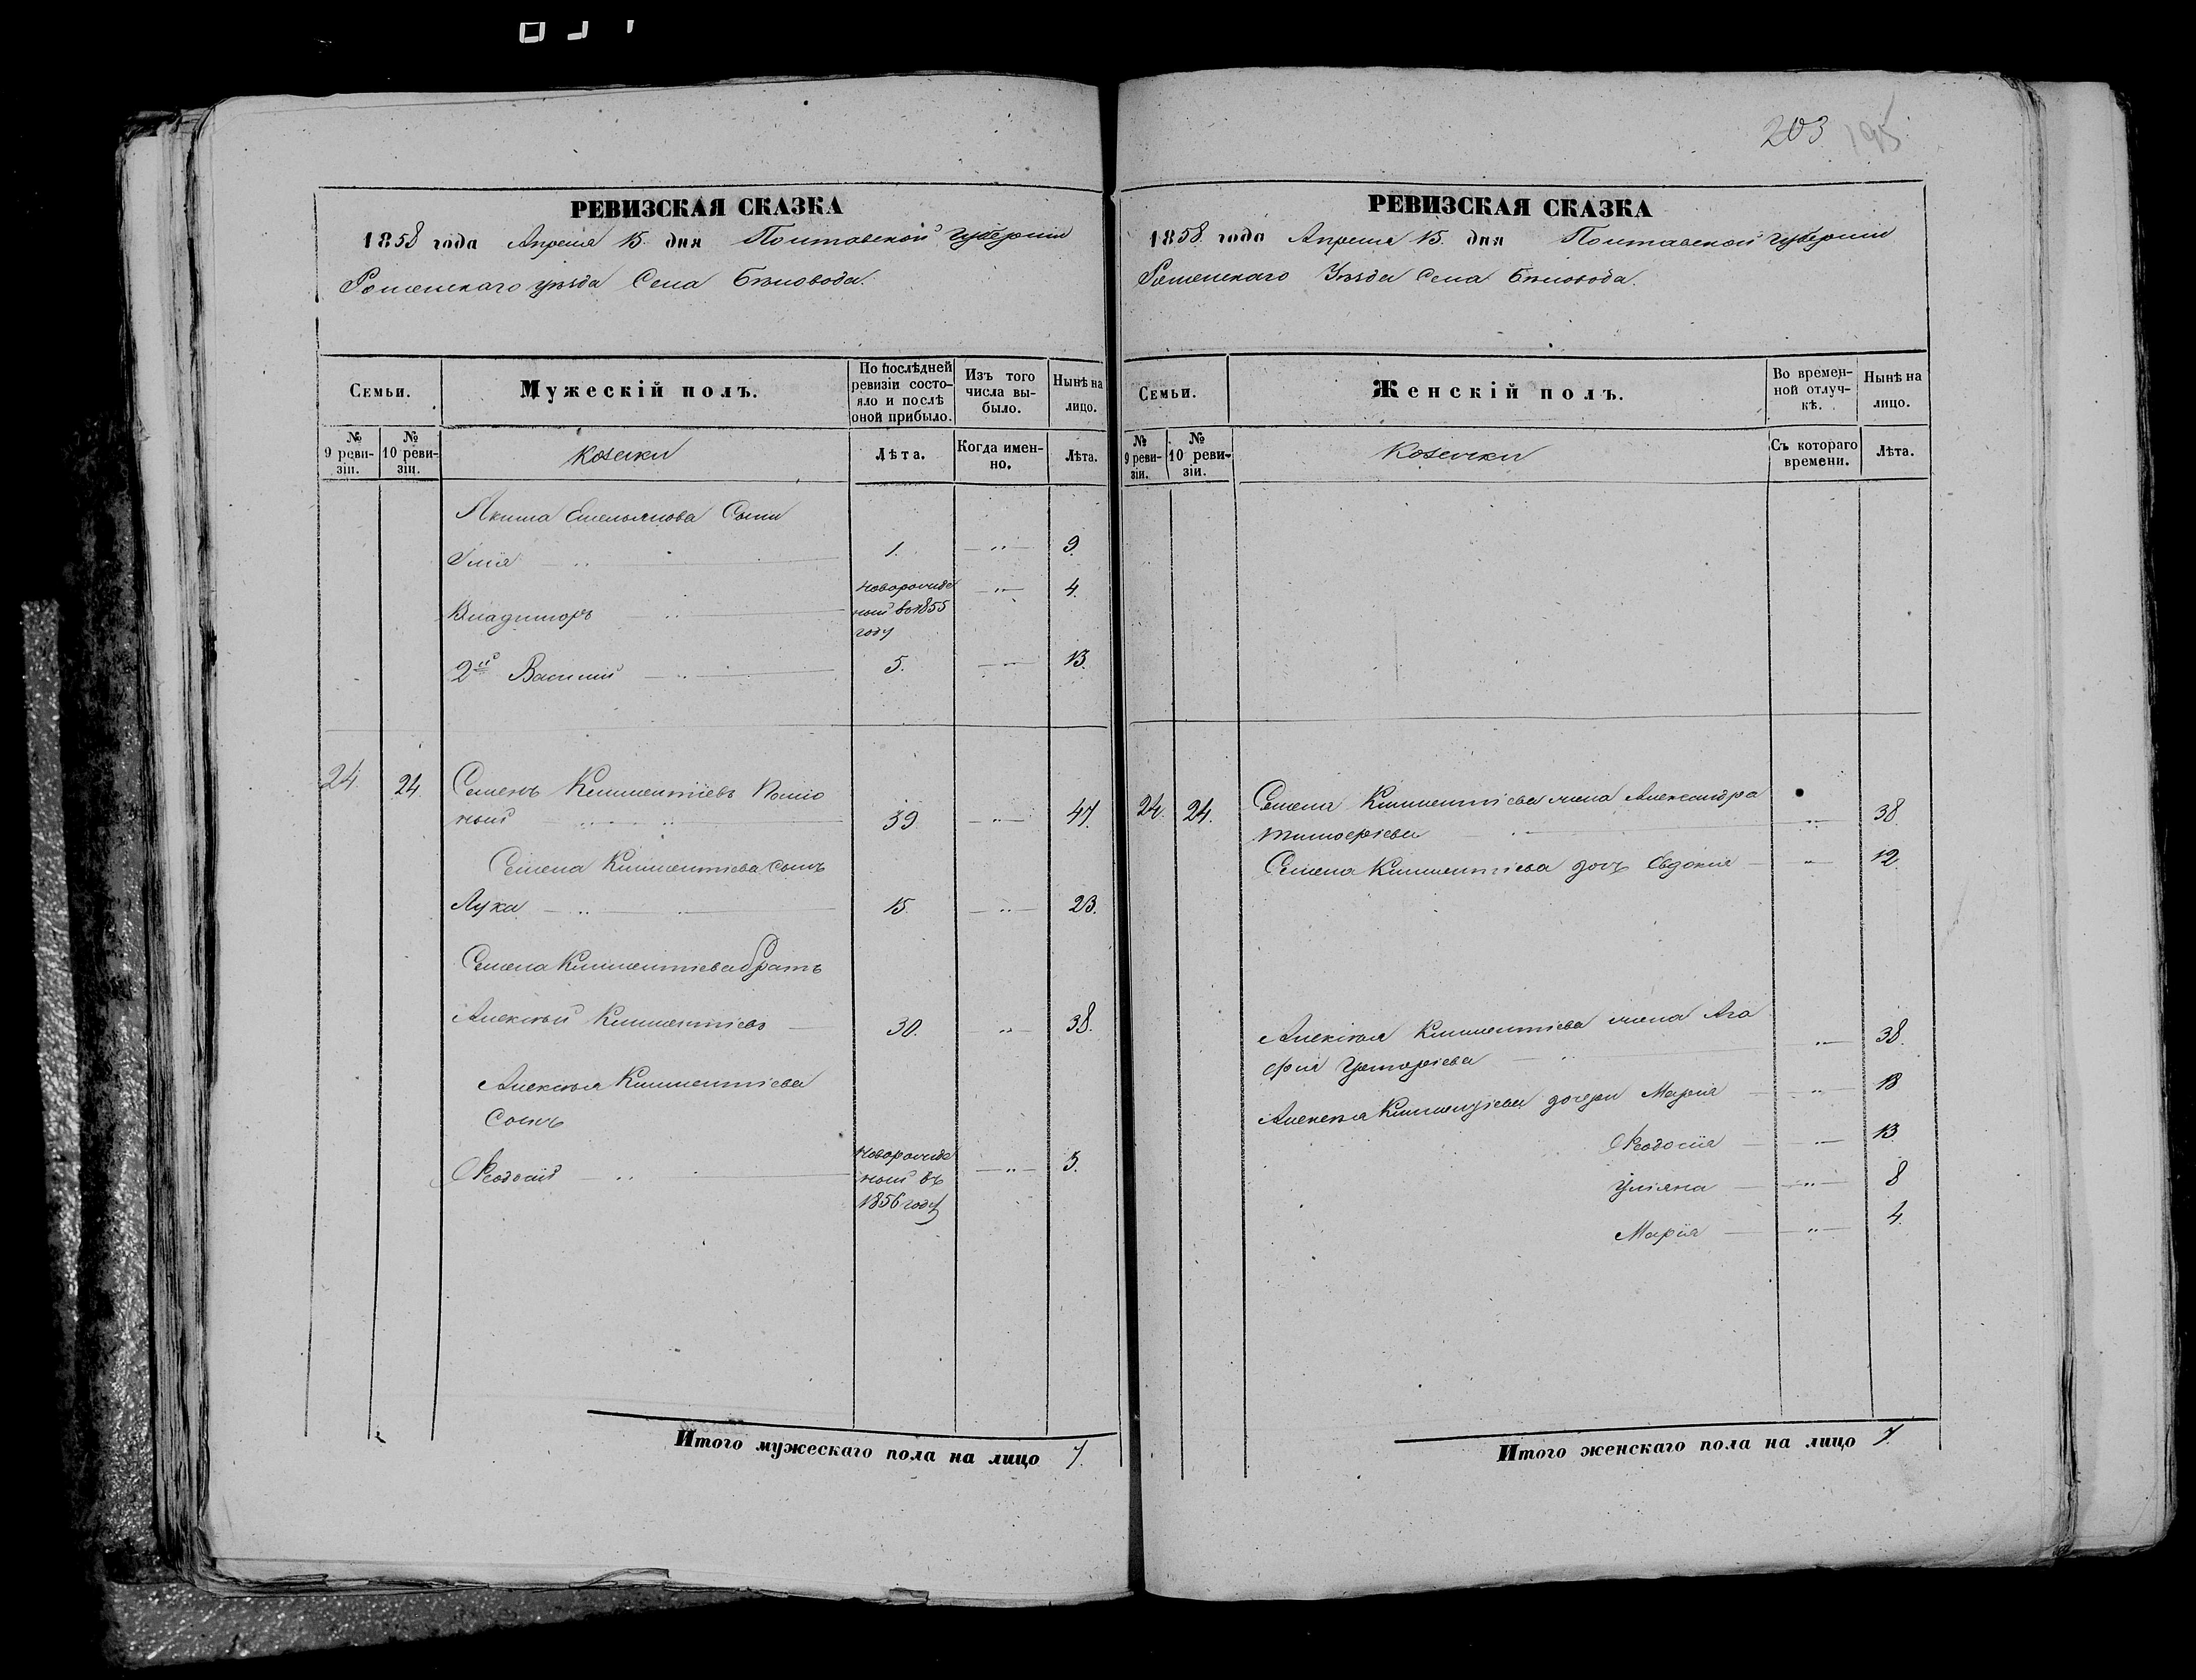 203 195
РЕВИЗСКАЯ СКАЗКА
1858 года Апреля 15. дня Полтавской губернии
Роменскаго уѣзда Села Бѣловода.
Семьи.
Мужескій полъ.
По послѣдней
ревизіи состо-
яло и послѣ
оной прибыло.
Изъ того
числа вы-
было.
Нынѣ на
лицо.
№
9 реви-
зіи.
№
10 реви-
зіи.
Козаки
Лѣта.
Когда имен-
но.
Лѣта.
Якима Емельянова Сыни
Илія 1. 9.
Владимиръ новорожде 4.
ный во 1855
году
2й Василий 5. 13.
24. 24. Семенъ Климентіевъ
ный 39 47.
Семена Климентіева Сынъ
Лука 15 23.
Семена Климентіева братъ
Алексѣй Климентіевъ 30. 38.
Алексѣя Климентіева
Сынъ
Ѳеодосій новорожде 3.
ный въ
1856 году
Итого мужескаго пола на лицо 7.
РЕВИЗСКАЯ СКАЗКА
1858. года Апреля 15. дня Полтавской губернии
Роменскаго Уѣзда Села Бѣловода.
Семьи.
Женскій полъ.
Во времен-
ной отлуч-
кѣ.
Нынѣ на
лицо.
№
9 реви-
зіи.
№
10 реви-
зіи.
Козачки
Съ котораго
времени.
Лѣта.
24. 24. Семена Климентіева жена Александра
Тимоѳеева 38.
Семена Климентіева дочь Евдокия 12.
Алексѣя Климентіева жена Ага
фия Григоріева 38.
Алексѣя Климентіева дочери Марія 18
Ѳеодосія 13.
Уліяна 8
Марія 4.
Итого женскаго пола на лицо 7.